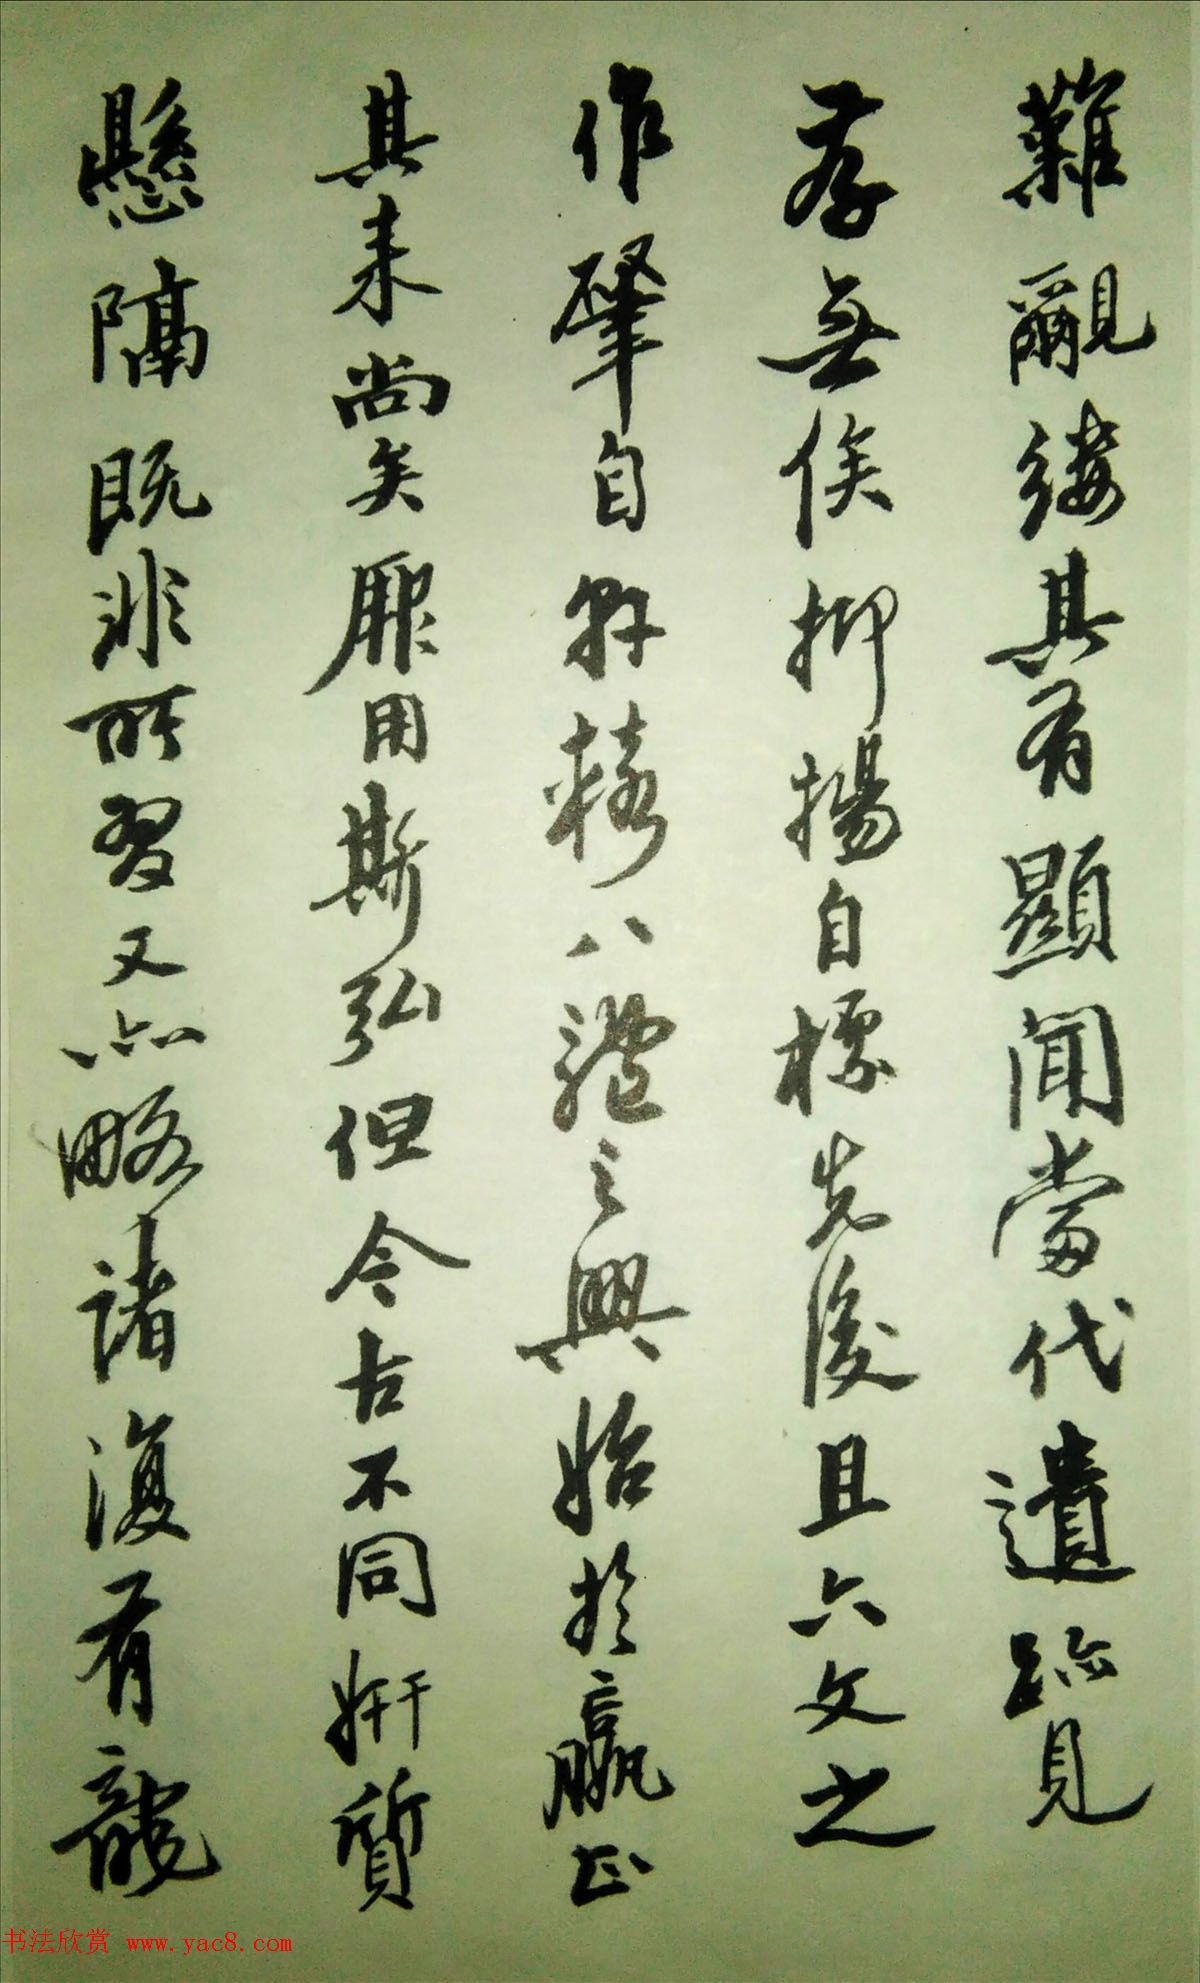 難覼縷其有顯聞當代遺跡見
存無俟抑揚自標先後且六文之
作肇自軒轅八體之興始於嬴正
其来尚矣厥用斯弘但今古不同妍質
懸隔既非所習又亦略諸復有龍
书法欣赏 www.yac8.com